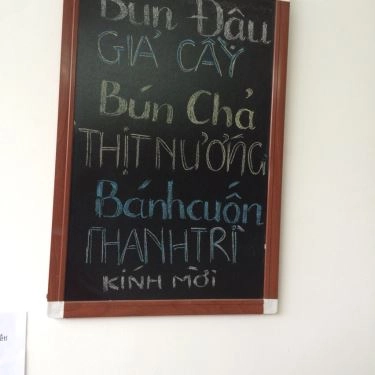 Bún Đậu
GIẢ CẦY
Bún Chả
THỊT NƯỚNG
Bánh cuốn
THANH TRÌ
KÍNH MỜI